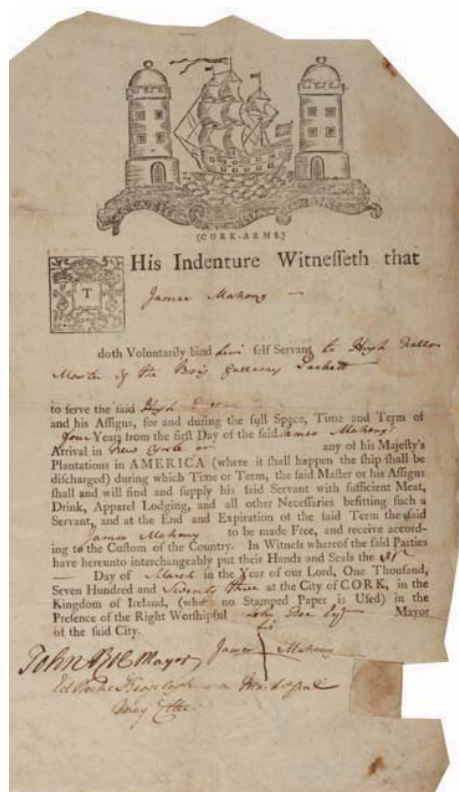 [CORK-ARMS.]
THis Indenture Witnesseth that
James Mahony —
doth Voluntarily bind him self Servant to Hugh
Master of the Brig Gallway Packett
to serve the said Hugh
and his Assigns, for and during the full Space, Time and Term of
four Years from the first Day of the said James Mahony's
Arrival in New York or any of his Majesty's
Plantations in AMERICA (where it shall happen the ship shall be
discharged) during which Time or Term, the said Master or his Assigns
shall and will find and supply his said Servant with sufficient Meat,
Drink, Apparel Lodging, and all other Necessaries befitting such a
Servant, and at the End and Expiration of the said Term the said
James Mahony to be made Free, and receive accord-
ing to the Custom of the Country. In Witness whereof the said Parties
have hereunto interchangeably put their Hands and Seals the
— Day of March in the Year of our Lord, One Thousand,
Seven Hundred and Seventy three at the City of CORK, in the
Kingdom of Ireland, (where no Stamped Paper is Used) in the
Presence of the Right Worshipful John Esqr Mayor
of the said City.
his
John Mayor James Mahony
Mark